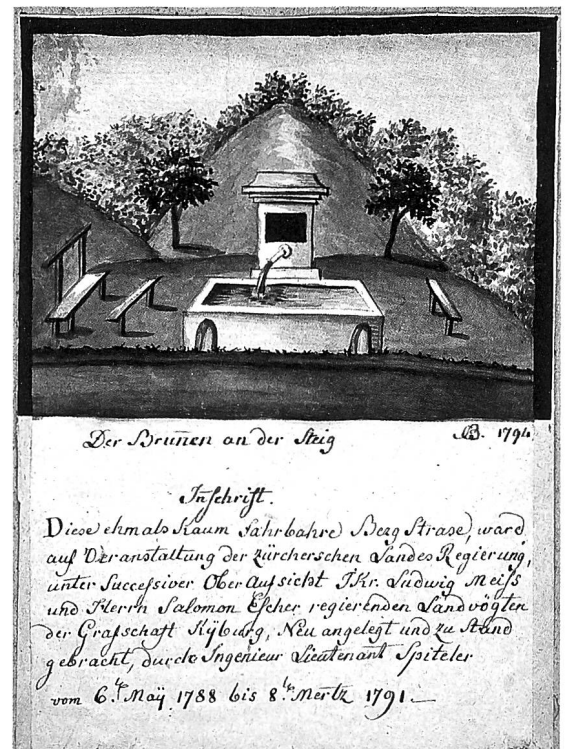 Der Brun̄en an der Steig B. 1794
Inschrift.
Diese ehmals kaum fahrbahre Berg Strase, ward
auf Veranstaltung der zürcherschen Landes Regierung,
unter Successiver Ober Aufsicht Jkr. Ludwig Meiss
und Herrn Salomon Escher regierenden Landvögten
der Grafschaft Kÿburg, Neu angelegt und zu Stand
gebracht, durch Ingenieur Lieutenant Spiteler
vom 6.ᵗ Maÿ 1788 bis 8.ᵗ Mertz 1791.